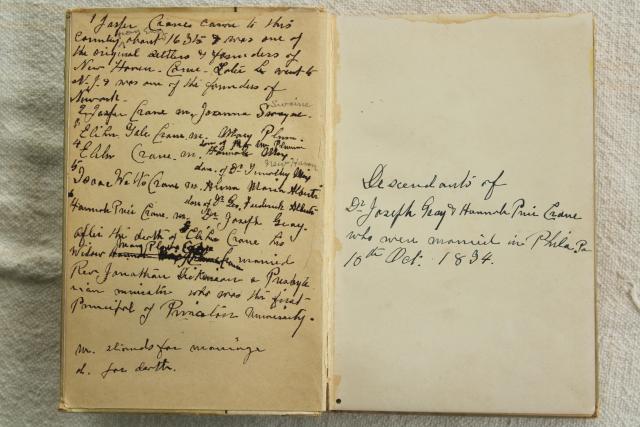 1 Jasper Crane came to this
country about 1635 & was one of
the original settlers & founders of
New Haven - Conn - Later he went to
N.J. & was one of the founders of
Newark.
Swaine
2 Jasper Crane m. Joanna Swayne.
3 Elihu Crane m. Mary Plum.
4 Elihu Crane m. Hannah
New Haven
dau. of Dr Timothy Mix
5 Isaac Crane m. Maria Alberti
dau. of Dr. Geo. Frederick Alberti
6 Hannah Price Crane. m. Dr Joseph Geay.
after the death of Elihu Crane his
Widow Mary Plumb Crane married
Rev. Jonathan Dickenson a Presbyte
rian minister who was the first
Principal of Princeton University.
m. stands for marriage
d. for death.
Descendants of
Dr Joseph Geay & Hannah Price Crane
who were married in Phila. Pa
10th Oct. 1834.